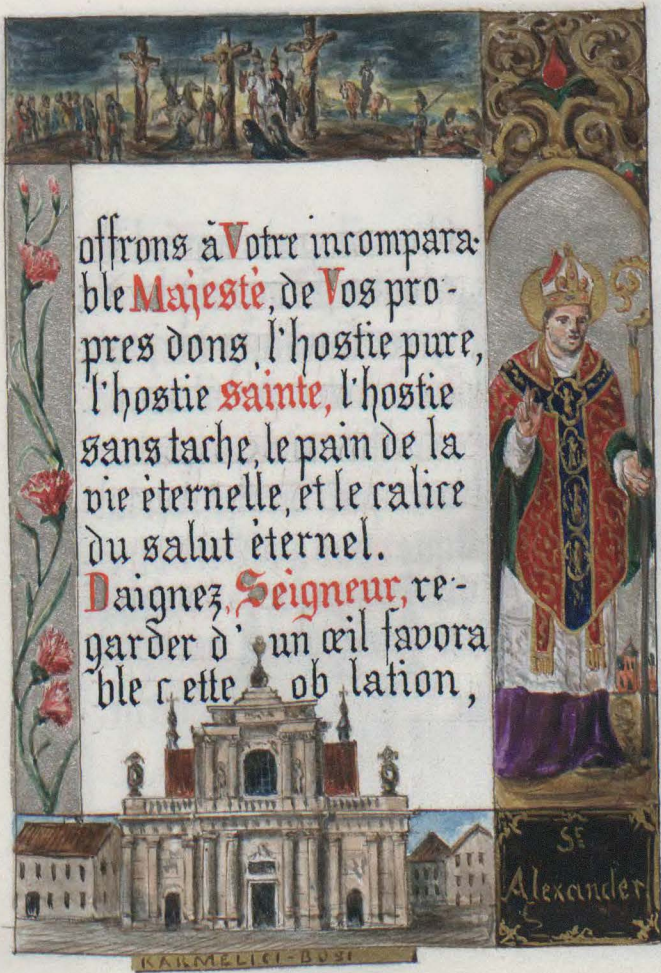 offrons à Votre incompara-
ble Majesté, de Vos pro-
pres dons, l'hostie pure,
l'hostie sainte, l'hostie
sans tache, le pain de la
vie èternelle, et le calice
du salut èternel.
Daignez, Seigneur, re-
garder d' un œil favora
ble cette ob lation,
St
Alexander
KARMELICI-BOSI